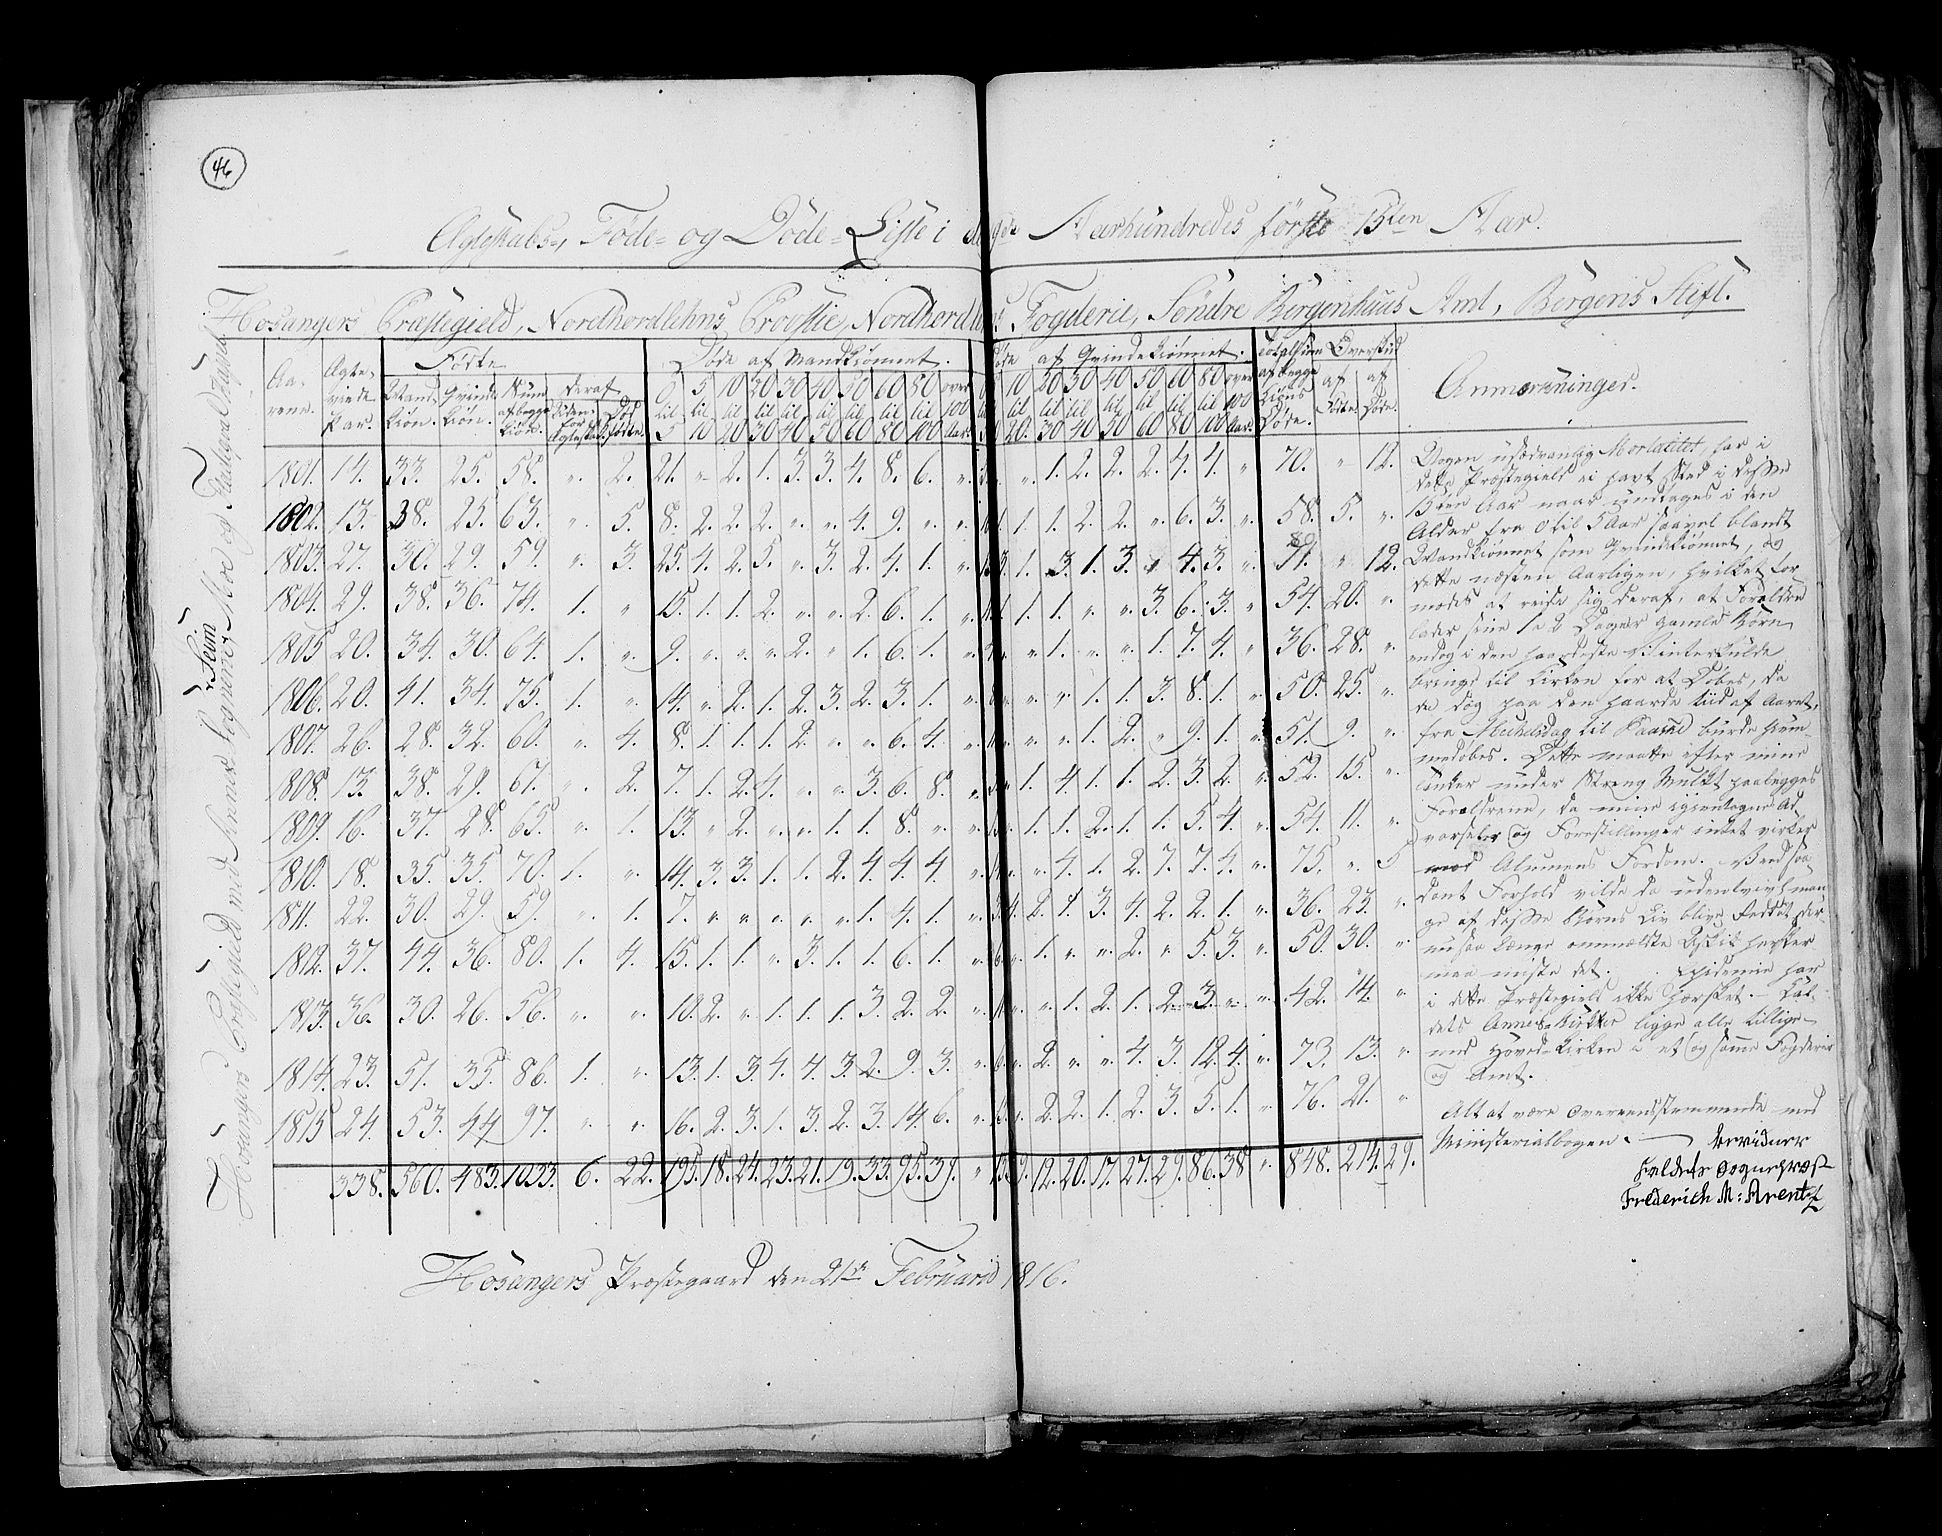 46
Ægteskabs-, Føde- og Døde-Liste i Aarhundredes første 15ten Aar.
Hosangers Præstegield, Nordhordlehns Provstie, Nordhord Fogderie, Søndre Bergenhuus Amt, Bergens Stift.
Hosangers Præstegield med
Aarene. Ægteviede Par. Fødte Døde af Mandkiønnet. Døde af Qvindekiønnet. Overskud Anmærkninger.
Mandkiøn. Qvindekiøn. Sum af begge Kiøn. deraf Uden for Ægteskab. Død fødte. 0 til 5 5 til 10 10 til 20 20 til 30 30 til 40 40 til 50 50 til 60 60 til 80 80 til 100 over 100 Aar. 10 til 20. 20 til 30 30 til 40 40 til 50 50 til 60 60 til 80 80 til 100 over 100 Aar. af begge Kiøns Døde. af Fødte. af Døde.
1801. 14. 33. 25. 58. " 2. 21. " 2. 1. 3. 3. 4. 8. 6. " " 1. 2. 2. 2. 4. 4. " 70. " 12.
1802. 13. 38. 25. 63. " 5. 8. 2. 2. 2. " " 4. 9. " " 1. 1. 2. 2. " 6. 3. " 58. 5. "
1803. 27. 30. 29. 59. " 3. 25. 4. 2. 5. " 3. 2. 4. 1. " 1. 3. 1. 3. 4. 3. " 71. " 12.
1804. 29. 38. 36. 74. 1. " 15. 1. 1. 2. " " 2. 6. 1. " 1. 1. " " 3. 6. 3. " 54. 20. "
1805 20. 34. 30. 64. 1. " 9. " " " 2. " 1. 6. 1. " " 1. " " 1. 7. 4. " 36. 28. "
1806. 20. 41. 34. 75. 1. " 14. " 2. 1. 2. 3. 2. 3. 1. " " " 1. 1. 3. 8. 1. " 50. 25. "
1807. 26. 28. 32. 60. " 4. 8. 1. 1. 1. 2. " " 6. 4. " " " 1. 2. " 9. 1. " 51. 9. "
1808. 13. 38. 29. 67. " 2. 7. 1. 2. 4. " " 3. 6. 8. " 1. 4. 1. 1. 2. 3. 2. " 52. 15. "
1809. 16. 37. 28. 65. " 1. 13. " 2. " " 1. 1. 8. " " 1. 1. 2. 1. 1. 5. 4. " 54. 11. "
1810. 18. 35. 35. 70. 1. " 14. 3. 3. 1. 1. 2. 4. 4. 4. " " 4. 1. 2. 7. 7. 4. " 75. " 5
1811. 22. 30. 29. 59. " 1. 7. " " " " " 1. 4. 1. " 2. 1. 3. 4. 2. 2. 1. " 36. 23. "
1812. 37. 44. 36. 80. 1. 4. 15. 1. 1. " 3. 1. 1. 6. 1. " 1. " " 2. " 5. 3. " 50. 30. "
1813. 36. 30. 26. 56. " " 10. 2. " 1. 1. 1. 3. 2. 2. " " 1. 2. 1. 2. 3. " " 42. 14. "
1814. 23. 51. 35. 86. 1. " 13. 1. 3. 4. 4. 3. 2. 9. 3. " 2. " " 4. 3. 12. 4. " 73. 13. "
1815 24. 53. 44 97. " " 16. 2. 3. 1. 3. 2. 3. 14. 6. " 2. 2. 1. 2. 3. 5. 1. " 76. 21. "
338. 560. 483. 1033. 6. 22. 195. 18. 24. 23. 21. 19. 33. 95. 39. " 12. 20. 17. 27. 29. 86. 38 " 848. 214. 29.
Nogen usædvanlig Mortalitet, har i
dette Præstegield ei havt Sted i disse
15ten Aar naar undtages i den
Alder fra 0 til 5 Aar saavel blandt
Mandkiønnet som Qvindekiønnet, og
dette næsten Aarligen, hvilket for
modes at reise sig deraf, at Forældre
lader sine 1 a 2 Dager gamle Børn
endog i den haardeste Vinterkulde
bringe til Kirken for at Døbes, da
de dog paa den haarde tiid af Aaret,
fra Michelsdag til Paaske burde hiem-
medøbes. Dette maatte efter mine
tanker under Streng Mulkt paalegges
Forældrene, da mine igientagne Ad
varseler og Forestillinger intet virker
mod Almuens Fordom. Ved saa
dant Forhold vilde da uden tvivl man
ge af disse Børns Liv blive Reddet der
maa miste det. Epidemie har
i dette Præstegield ikke hersket. Kal
dets Annex Kirker ligge alle tillige
med Hoved-Kirken i et og samme Fogderie
og Amt.
Alt at være overeensstemmende med
Ministerialbogen. bevidner
Kaldets Sognepræst
Frederich M: Arentz
Hosangers Præstegaard den 21de Februarii 1816.